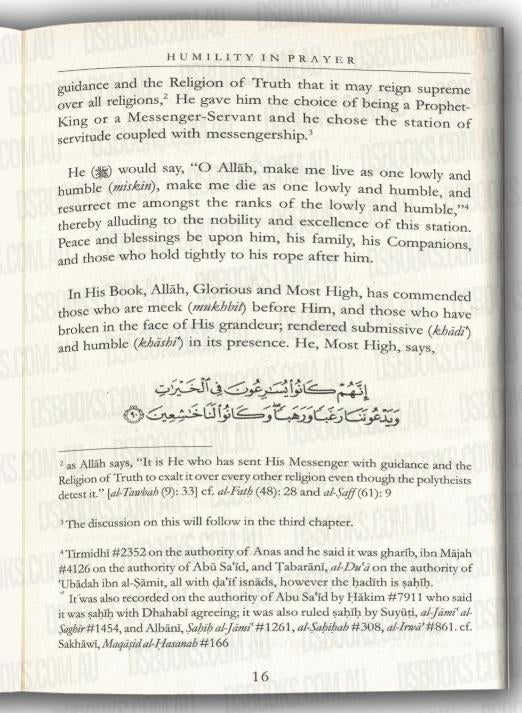 HUMILITY IN PRAYER
guidance and the Religion of Truth that it may reign supreme
over all religions,² He gave him the choice of being a Prophet-
King or a Messenger-Servant and he chose the station of
servitude coupled with messengership.³
He (ﷺ) would say, “O Allāh, make me live as one lowly and
humble (miskīn), make me die as one lowly and humble, and
resurrect me amongst the ranks of the lowly and humble,”⁴
thereby alluding to the nobility and excellence of this station.
Peace and blessings be upon him, his family, his Companions,
and those who hold tightly to his rope after him.
In His Book, Allāh, Glorious and Most High, has commended
those who are meek (mukhbit) before Him, and those who have
broken in the face of His grandeur; rendered submissive (khāḍiʿ)
and humble (khāshiʿ) in its presence. He, Most High, says,
إِنَّهُمْ كَانُوا۟ يُسَـٰرِعُونَ فِى ٱلْخَيْرَٰتِ
وَيَدْعُونَنَا رَغَبًا وَرَهَبًا ۖ وَكَانُوا۟ لَنَا خَـٰشِعِينَ ﴿٩٠﴾
² as Allāh says, “It is He who has sent His Messenger with guidance and the
Religion of Truth to exalt it over every other religion even though the polytheists
detest it.” [al-Tawbah (9): 33] cf. al-Fatḥ (48): 28 and al-Ṣaff (61): 9
³ The discussion on this will follow in the third chapter.
⁴ Tirmidhī #2352 on the authority of Anas and he said it was gharīb, ibn Mājah
#4126 on the authority of Abū Saʿīd, and Ṭabarānī, al-Duʿā on the authority of
ʿUbādah ibn al-Ṣāmit, all with ḍaʿīf isnāds, however the ḥadīth is ṣaḥīḥ.
It was also recorded on the authority of Abu Saʿīd by Ḥākim #7911 who said
it was ṣaḥīḥ with Dhahabī agreeing; it was also ruled ṣaḥīḥ by Suyūṭi, al-Jāmiʿ al-
Ṣaghīr #1454, and Albānī, Ṣaḥīḥ al-Jāmiʿ #1261, al-Ṣaḥīḥah #308, al-Irwāʾ #861. cf.
Sakhāwī, Maqāṣid al-Ḥasanah #166
16
DSBOOKS.COM.AU